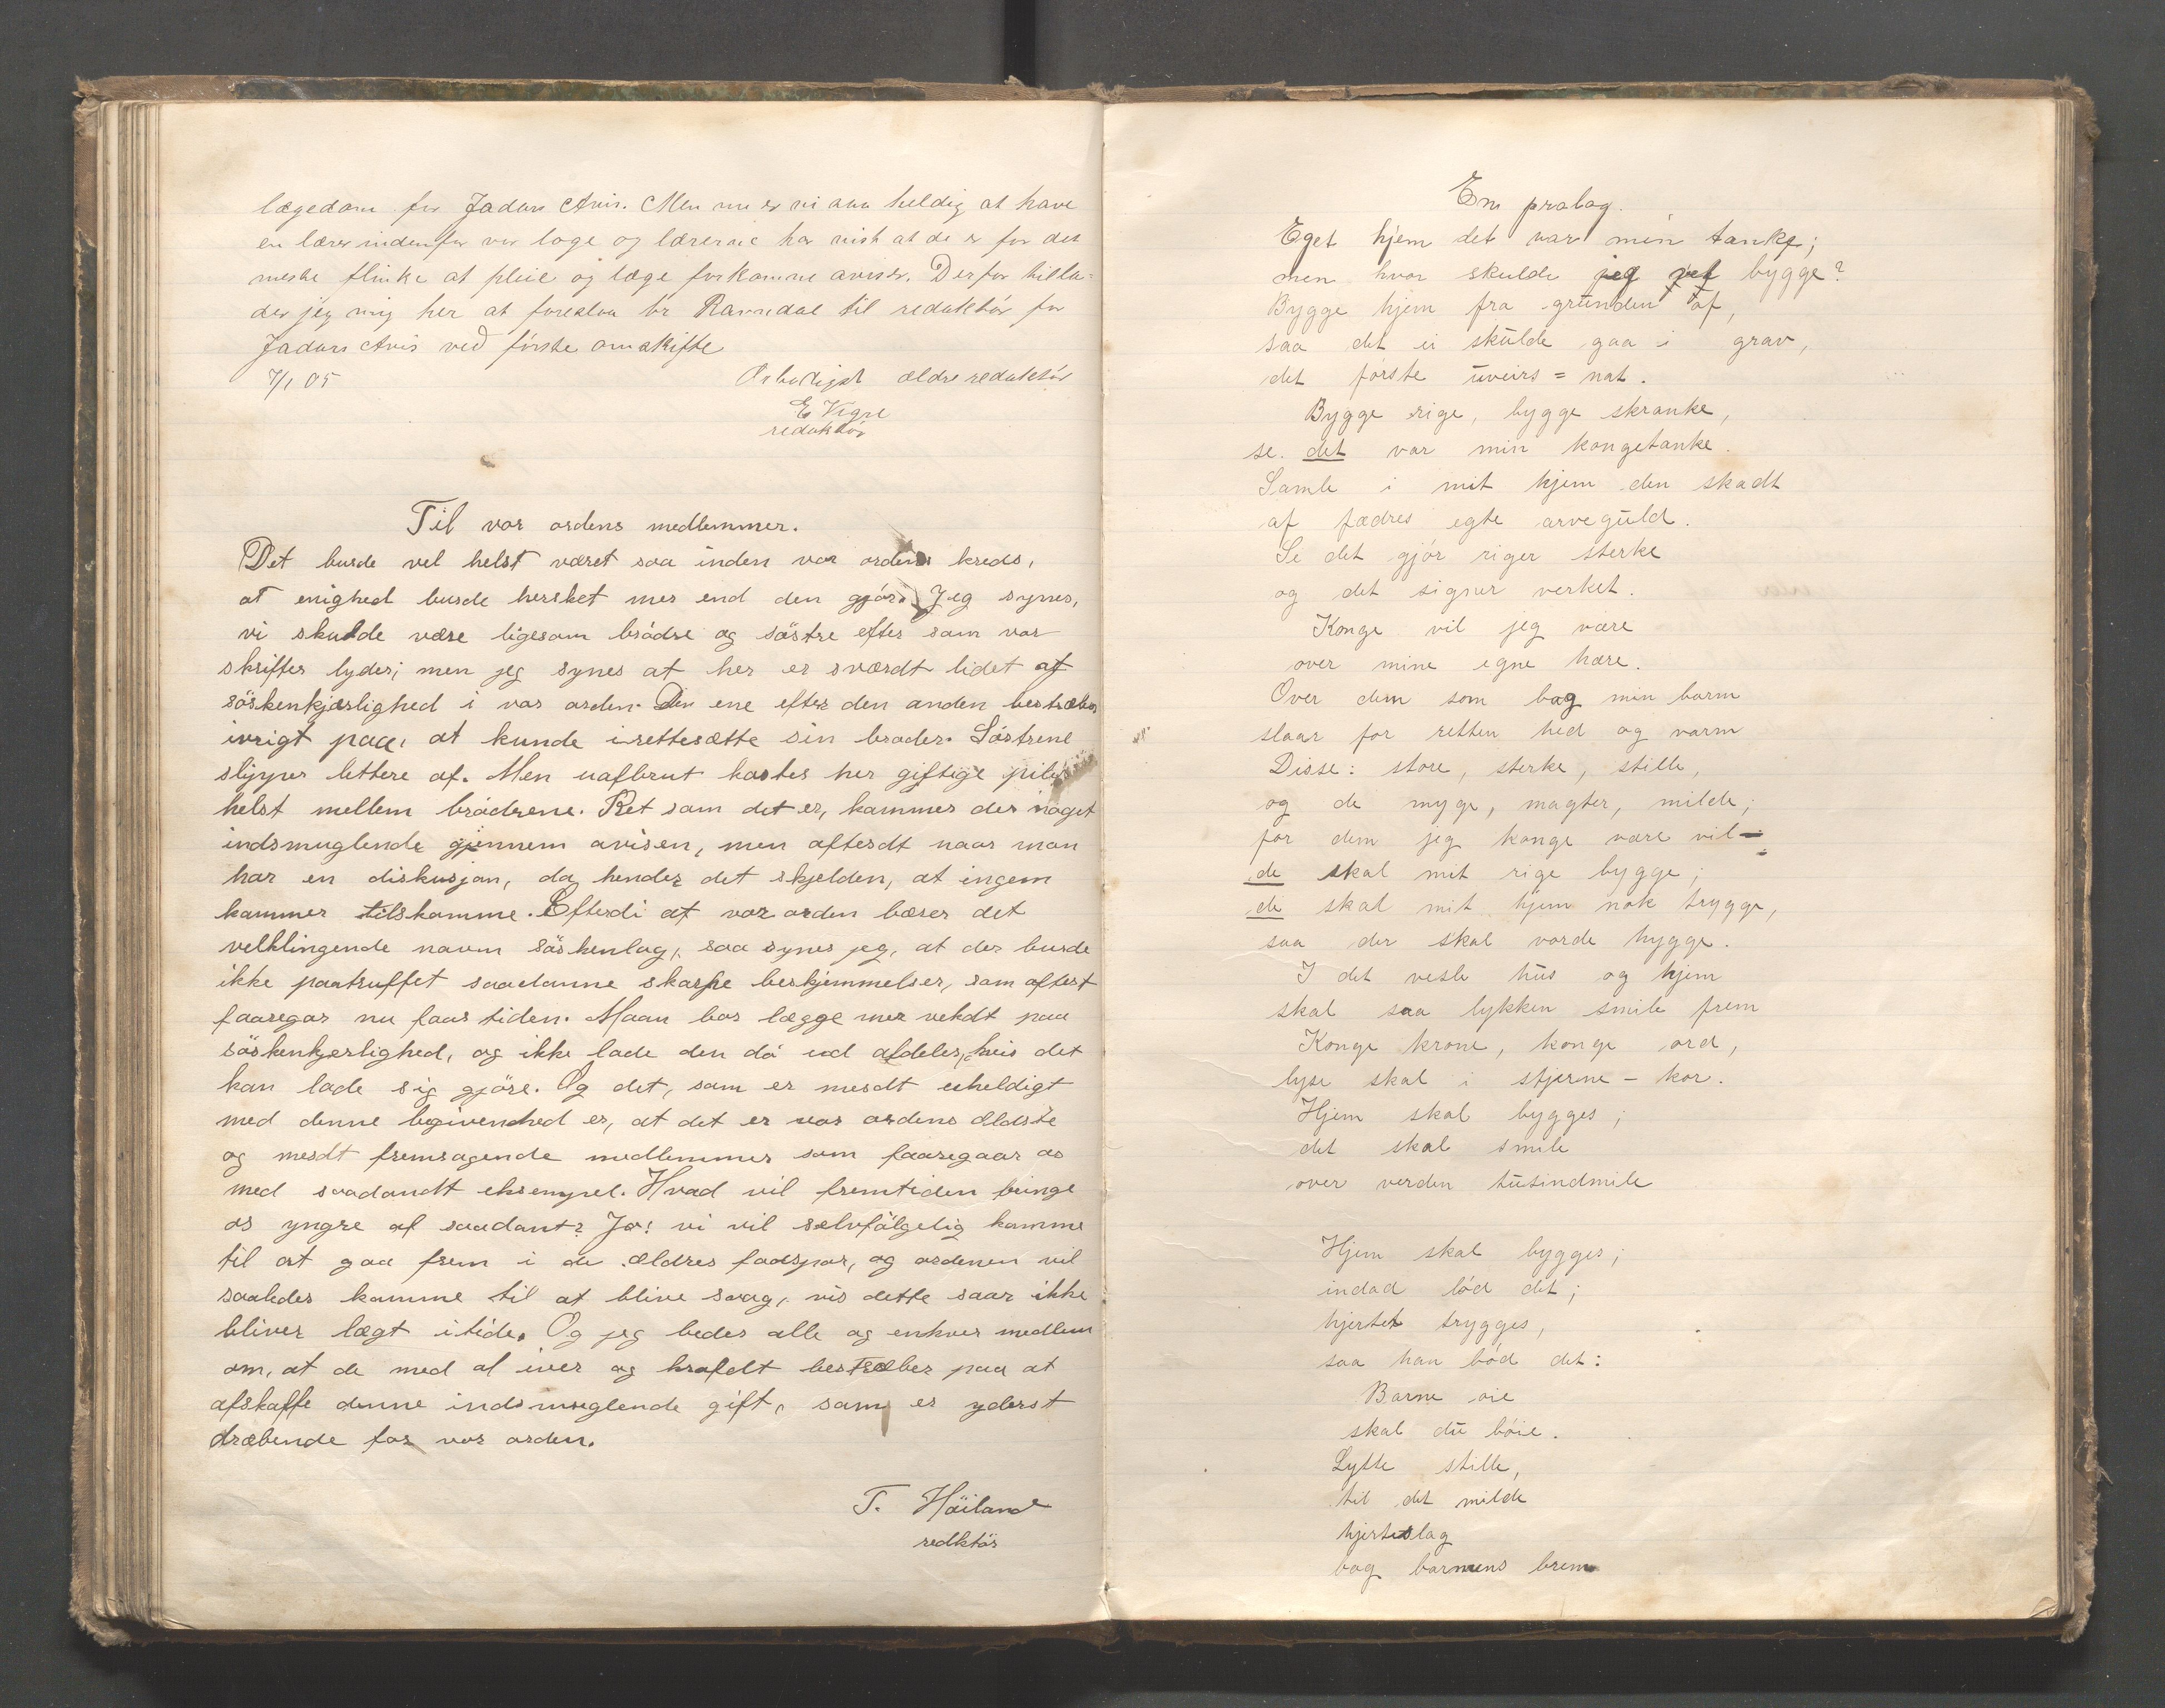 lægedom for Jadars Avis. Men nu er vi saa heldig at have
en lærer indenfor vor loge og lærerne har vist at de er for det
meste flinke at pleie og læge forkomne aviser. Derfor tilla-
der jeg mig her at foreslaa br Ravndal til redaktör for
Jadars Avis ved förste omskifte
7/1 05 Ærbödigst ældre redaktör
E Vigre
redaktör
Til vor ordens medlemmer.
Det burde vel helst været saa inden vor ordens kreds,
at enighed burde hersket mer end den gjör. Jeg synes,
vi skulde være ligesom brödre og söstre efter som vor
skrifter lyder; men jeg synes at her er sværdt lidet af
söskenkjærlighed i vor orden. Den ene efter den anden bestræber
ivrigt paa, at kunde irettesætte sin broder. Söstrene
slipper lettere af. Men uafbrut kastes her giftige piler
helst mellem brödrene. Ret som det er, kommer der noget
indsmuglende gjennem avisen, men oftesdt naar man
har en diskusjon, da hender det skjelden, at ingem
kommer tilskamme. Efterdi at vor orden bærer det
velklingende navm söskenlag, saa synes jeg, at der burde
ikke paatruffet saadanne skarpe beskjemmelser, som oftest
faaregar nu faar tiden. Maan bor lægge mer vekdt paa
söskenkjerlighed, og ikke lade den dö ud aldeles, hvis det
kan lade sig gjöre. Og det, som er mesdt uheldigt
med denne begivenhed er, at det er vor ordens ældste
og mesdt fremragende medlemmer som faaregaar os
med saadandt eksempel. Hvad vil fremtiden bringe
os yngre af saadant? Jo! vi vil selvfölgelig komme
til at gaa frem i de ældres fodspor, og ordenen vil
saaledes komme til at blive svag, vis dette saar ikke
bliver lægt itide. Og jeg beder alle og enhver medlem
om, at de med al iver og krafdt bestræber paa at
afskaffe denne indsmuglende gift, som er yderst
dræbende for vor orden.
T. Höiland
redktör
Em prolog.
Eget hjem det var min tanke;
men hvor skulde jeg vel bygge?
Bygge hjem fra grunden af,
saa det ei skulde gaa i grav,
det første uveirs = nat.
Bygge rige, bygge skranke,
se. det var min kongetanke.
Samle i mit hjem den skadt
af fædres egte arveguld.
Se det gjör riger sterke
og det signer verket.
Konge vil jeg være
over mine egne hære.
Over dem som bag min barm
slaar for retten hed og varm
Disse: store, sterke, stille,
og de myge, magter, milde;
for dem jeg konge være vil —
de skal mit rige bygge;
de skal mit hjem nok trygge,
saa der skal vorde hygge.
I det vesle hus og hjem
skal saa lykken smile frem
Konge krone, konge ord,
lyse skal i stjerne - kor.
Hjem skal bygges;
det skal smile
over verden tusindmile
Hjem skal bygges;
indad lød det;
hjertet trygges,
saa han bød det:
Barne øie
skal du bøie.
Lytte stille,
til det milde
hjerteslag
bag barmens brem